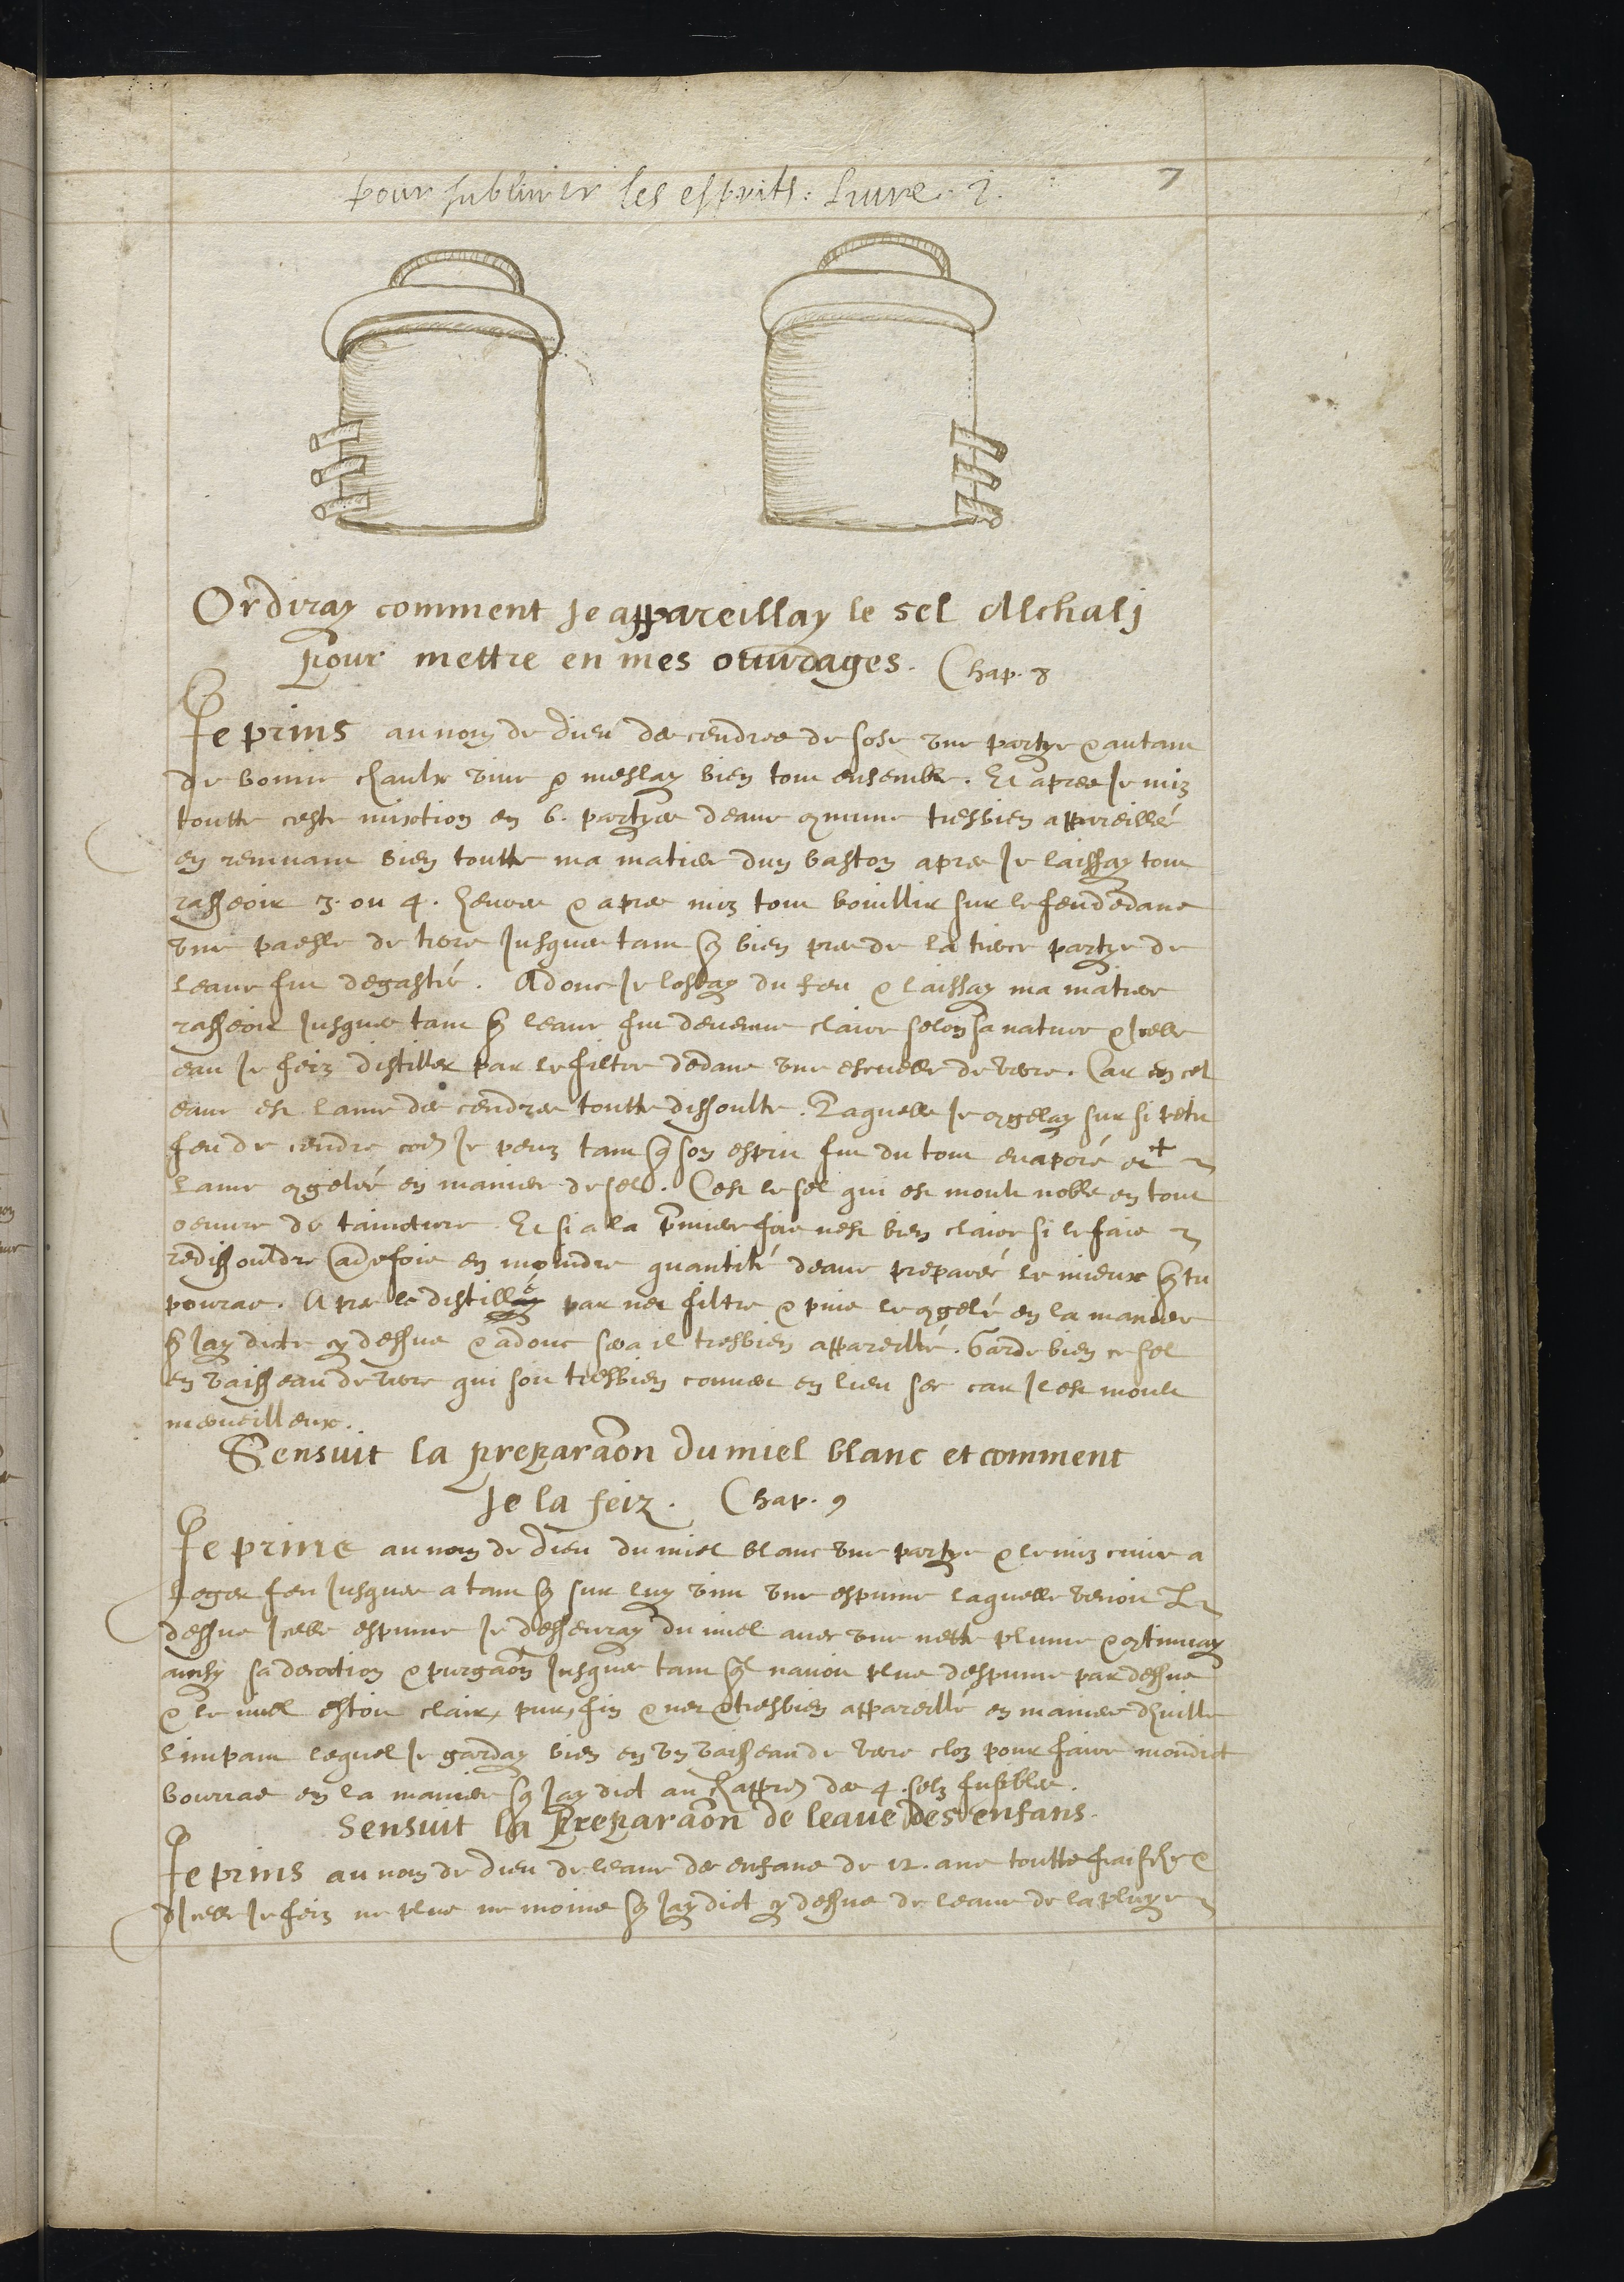 pour sublimer les esprits : Liure. 2.
7
Or diray comment Je appareillay le sel Alchalj
Pour mettre en mes ouurages. Chap. 8
Je prins au nom de dieu des cendres de sode vne partye & autant
de bonne chaulx viue & meslay bien tout ensemble. Et apres Je mis
toutte ceste mixtion en 6. partyes deaue 9mune tresbien appareillé
en remuant bien toutte ma matiere dun baston apres Je laissay tout
rasseoir 3. ou 4. heures & apres mis tout bouillir sur le feu dedans
vne paesle de terre Jusques tant q̃ bien pres de la tierce partye de
leaue fut degastée. Adonc Je lostay du feu & laissay ma matiere
rasseoir Jusques tant q̃ leaue fut deuenue claire selon sa nature & Icelle
eau Je feiz distiller par le filtre dedans vne escuelle de verre. Car en cel
eaue est lame des cendres toutte dissoulte. Laquelle Je 9gelay sur si petit
feu de cendre coe Je peuz tant q̃ son esprit fut du tout euaporé et +
lame 9gelée en maniere de sel. Cest le sel qui est moult noble en tout
oeuure de taincture. Et si a la p̃miere fois nest bien claire si le fais
redissouldre aultrefois en moindre quantité deaue preparée le mieux q̃ tu
pourras. Apres le distillé par net filtre & puis le 9gelé en la maniere
q̃ Jay dicte cy dessus & adonc sera il tresbien appareillé. Garde bien ce sel
en vaisseau de verre qui soit tresbien couuert en lieu sec car Il est moult
merueilleux.
Sensuit la preparaõn du miel blanc et comment
Je la feiz. Chap. 9
Je prins au nom de dieu du miel blanc vne partye & le mis cuire a
leger feu Jusques a tant q̃ sur luy vint vne espume laquelle venoit
dessus Icelle espume Je desseuray du miel auec vne nette plume & 9tinuay
ainsy sa decoction & purgaõn Jusques tant q̃l nauoit plus despume par dessus
& le miel estoit clair, pur, fin & net & tresbien appareillé en maniere dhuille
limpant lequel Je garday bien en vn vaisseau de verre clos pour faire mondict
bourras en la maniere q̃ Jay dict au chappre des 4. selz fusibles.
Sensuit la Preparaõn de leaue des enfans.
Je prins au nom de dieu de leaue des enfans de 12. ans toutte fraische &
dIcelle Je feiz ne plus ne moins q̃ Jay dict cy dessus de leaue de la pluye